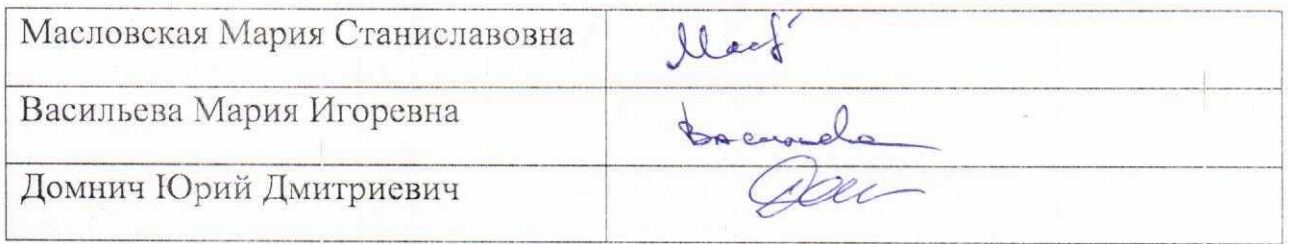 Масловская Мария Станиславовна
Васильева Мария Игоревна
Домнич Юрий Дмитриевич